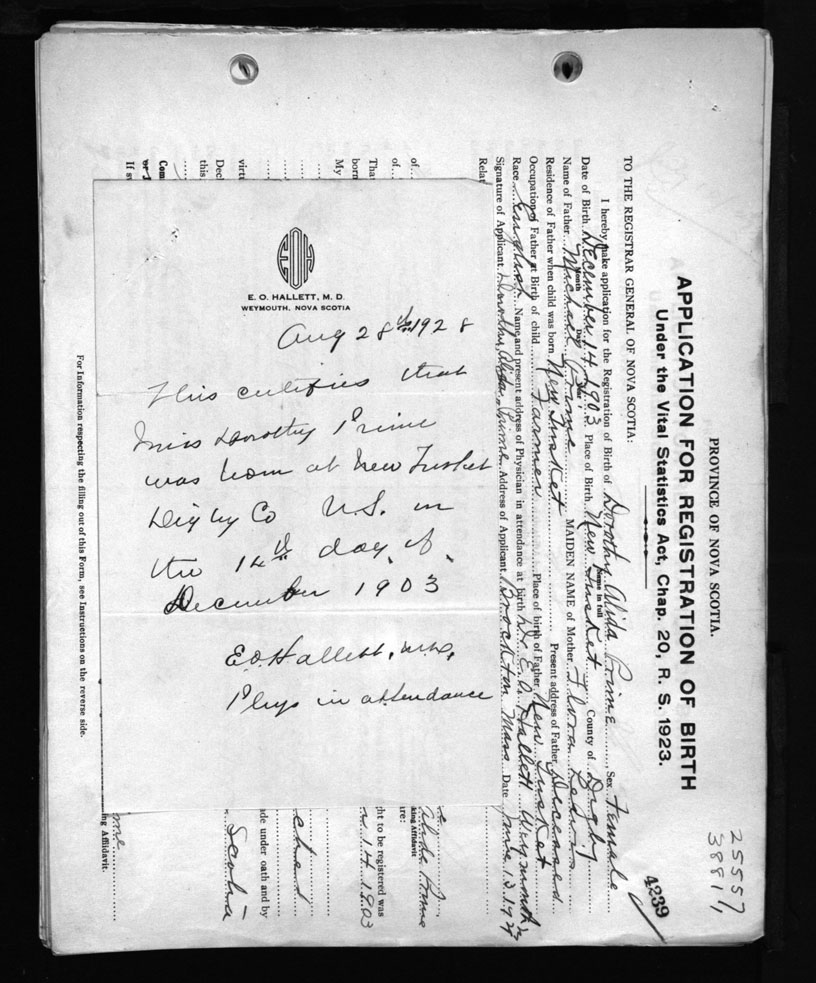 PROVINCE OF NOVA SCOTIA.
APPLICATION FOR REGISTRATION OF BIRTH
Under the Vital Statistics Act, Chap. 20, R. S. 1923.
25557
38811
4239
TO THE REGISTRAR GENERAL OF NOVA SCOTIA:
I hereby make application for the Registration of Birth of Dorothy Alida Prime Sex Female
Name in full
Date of Birth December 14 1903 Place of Birth New Tusket County of Digby
Month Day
Name of Father Michael Prime MAIDEN NAME of Mother
Residence of Father when child was born New Tusket Present address of Father Deceased
Occupation of Father at Birth of child Farmer Place of birth of Father New Tusket
Race English Name and present address of Physician in attendance at birth Dr. E. O. Hallett Weymouth
Signature of Applicant Dorothy Prime Address of Applicant Brockton Mass Date
Rela
of
of
Tha
born
My
virtu
Decl
this
Com
or J
If sw
king Affidavit
re:
ght to be registered was
14 1903
ade under oath and by
Scotia
ng Affidavit.
For Information respecting the filling out of this Form, see Instructions on the reverse side.
E. O. HALLETT, M. D.
WEYMOUTH, NOVA SCOTIA
Aug 28th 1928
This certifies that
Miss Dorothy Prime
was born at New Tusket
Digby Co N.S. on
the 14th day of
December 1903
E.O. Hallett, M.D.
Phys in attendance